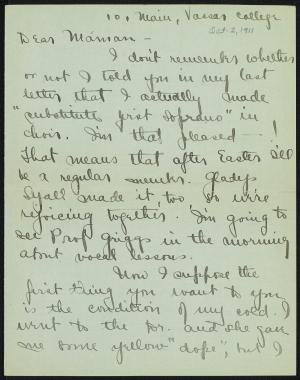 101 Main, Vassar College
Oct. 2, 1911
Dear Maman -
I don't remember whether
or not I told you in my last
letter that I actually made
"substitute first soprano" in
choir. I'm that pleased — !
That means that after Easter I'll
be a regular member. Gladys
Lyall made it, too, so we're
rejoicing together. I'm going to
see Prof. Griggs in the morning
about vocal lessons.
Now I suppose the
first thing you want to you
is the condition of my cold. I
went to the Dr. and she gave
me some yellow "dope", but I